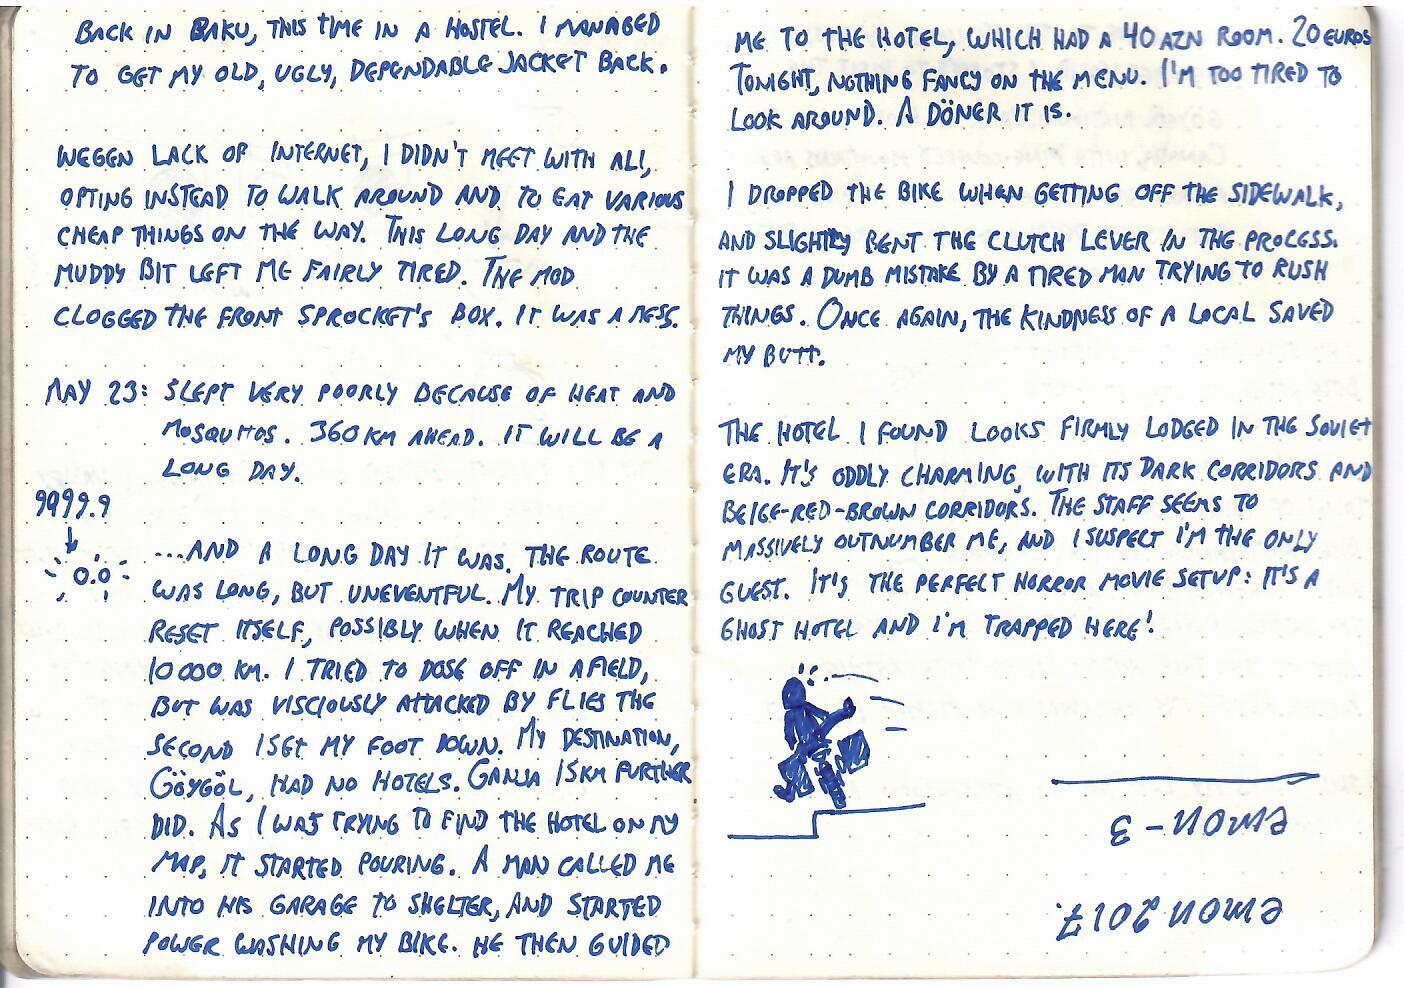 BACK IN BAKU, THIS TIME IN A HOSTEL. I MANAGED
TO GET MY OLD, UGLY, DEPENDABLE JACKET BACK.
WEGEN LACK OF INTERNET, I DIDN'T MEET WITH ALI,
OPTING INSTEAD TO WALK AROUND AND TO EAT VARIOUS
CHEAP THINGS ON THE WAY. THIS LONG DAY AND THE
MUDDY BIT LEFT ME FAIRLY TIRED. THE MOD
CLOGGED THE FRONT SPROCKET'S BOX. IT WAS A MESS.
MAY 23: SLEPT VERY POORLY BECAUSE OF HEAT AND
MOSQUITOS. 360 KM AHEAD. IT WILL BE A
LONG DAY.
9999.9
0.0
...AND A LONG DAY IT WAS. THE ROUTE
WAS LONG, BUT UNEVENTFUL. MY TRIP COUNTER
RESET ITSELF, POSSIBLY WHEN IT REACHED
10 000 KM. I TRIED TO DOSE OFF IN A FIELD,
BUT WAS VISCIOUSLY ATTACKED BY FLIES THE
SECOND I SET MY FOOT DOWN. MY DESTINATION,
GÖYGÖL, HAD NO HOTELS. GANJA 15KM FURTHER
DID. AS I WAS TRYING TO FIND THE HOTEL ON MY
MAP, IT STARTED POURING. A MAN CALLED ME
INTO HIS GARAGE TO SHELTER, AND STARTED
POWER WASHING MY BIKE. HE THEN GUIDED
ME TO THE HOTEL, WHICH HAD A 40 AZN ROOM. 20 EUROS
TONIGHT, NOTHING FANCY ON THE MENU. I'M TOO TIRED TO
LOOK AROUND. A DÖNER IT IS.
I DROPPED THE BIKE WHEN GETTING OFF THE SIDEWALK,
AND SLIGHTLY BENT THE CLUTCH LEVER IN THE PROCESS.
IT WAS A DUMB MISTAKE BY A TIRED MAN TRYING TO RUSH
THINGS. ONCE AGAIN, THE KINDNESS OF A LOCAL SAVED
MY BUTT.
THE HOTEL I FOUND LOOKS FIRMLY LODGED IN THE SOVIET
ERA. IT'S ODDLY CHARMING, WITH ITS DARK CORRIDORS AND
BEIGE-RED-BROWN CORRIDORS. THE STAFF SEEMS TO
MASSIVELY OUTNUMBER ME, AND I SUSPECT I'M THE ONLY
GUEST. IT'S THE PERFECT HORROR MOVIE SETUP: IT'S A
GHOST HOTEL AND I'M TRAPPED HERE!